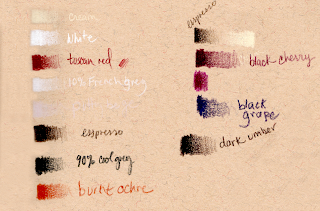 cream
white
tuscan red
10% French grey
espresso
90% cool grey
burnt ochre
espresso
black cherry
black
grape
dark umber